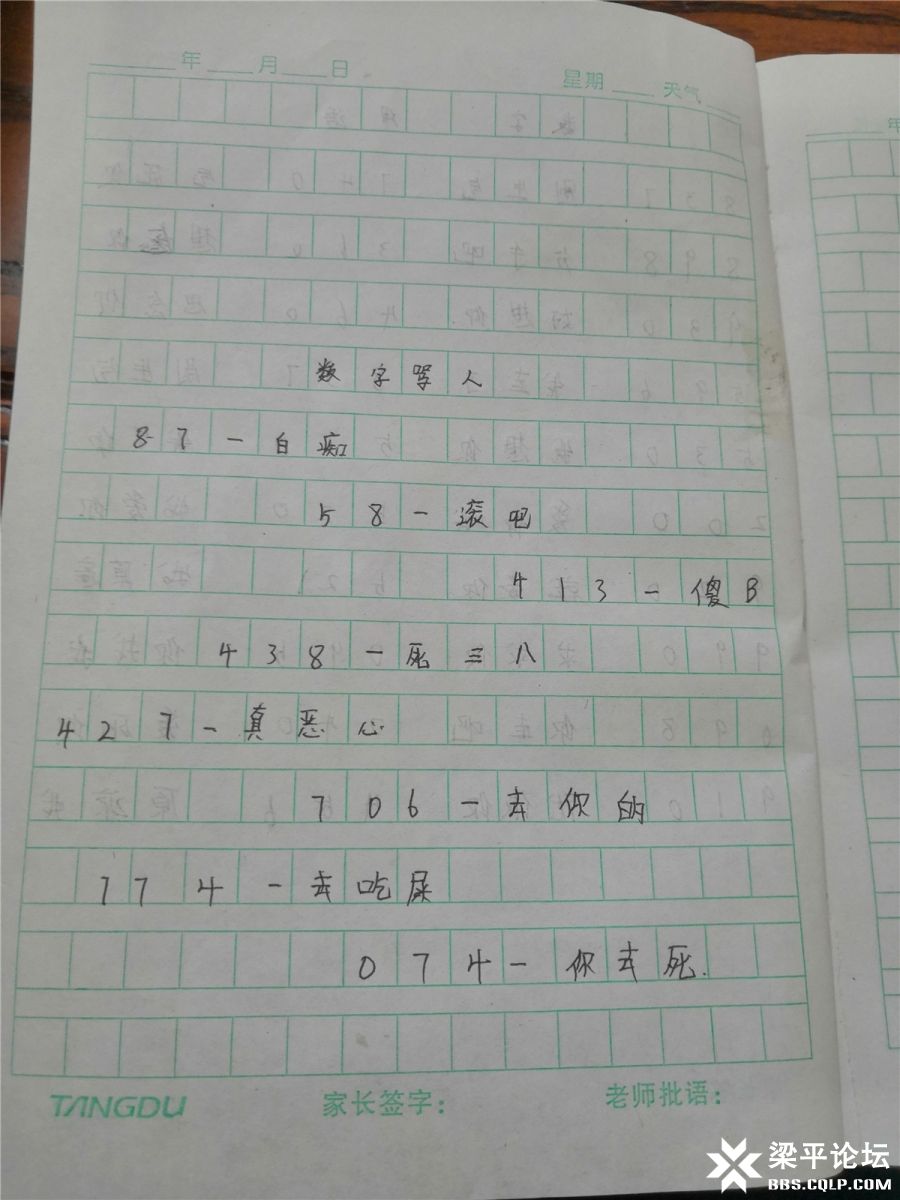 年 月 日 星期 天气
数字骂人
87-白痴
58-滚吧
413-傻B
438-死三八
427-真恶心
706-去你的
774-去吃屎
074-你去死.
TANGDU 家长签字: 老师批语:
梁平论坛
BBS.CQLP.COM